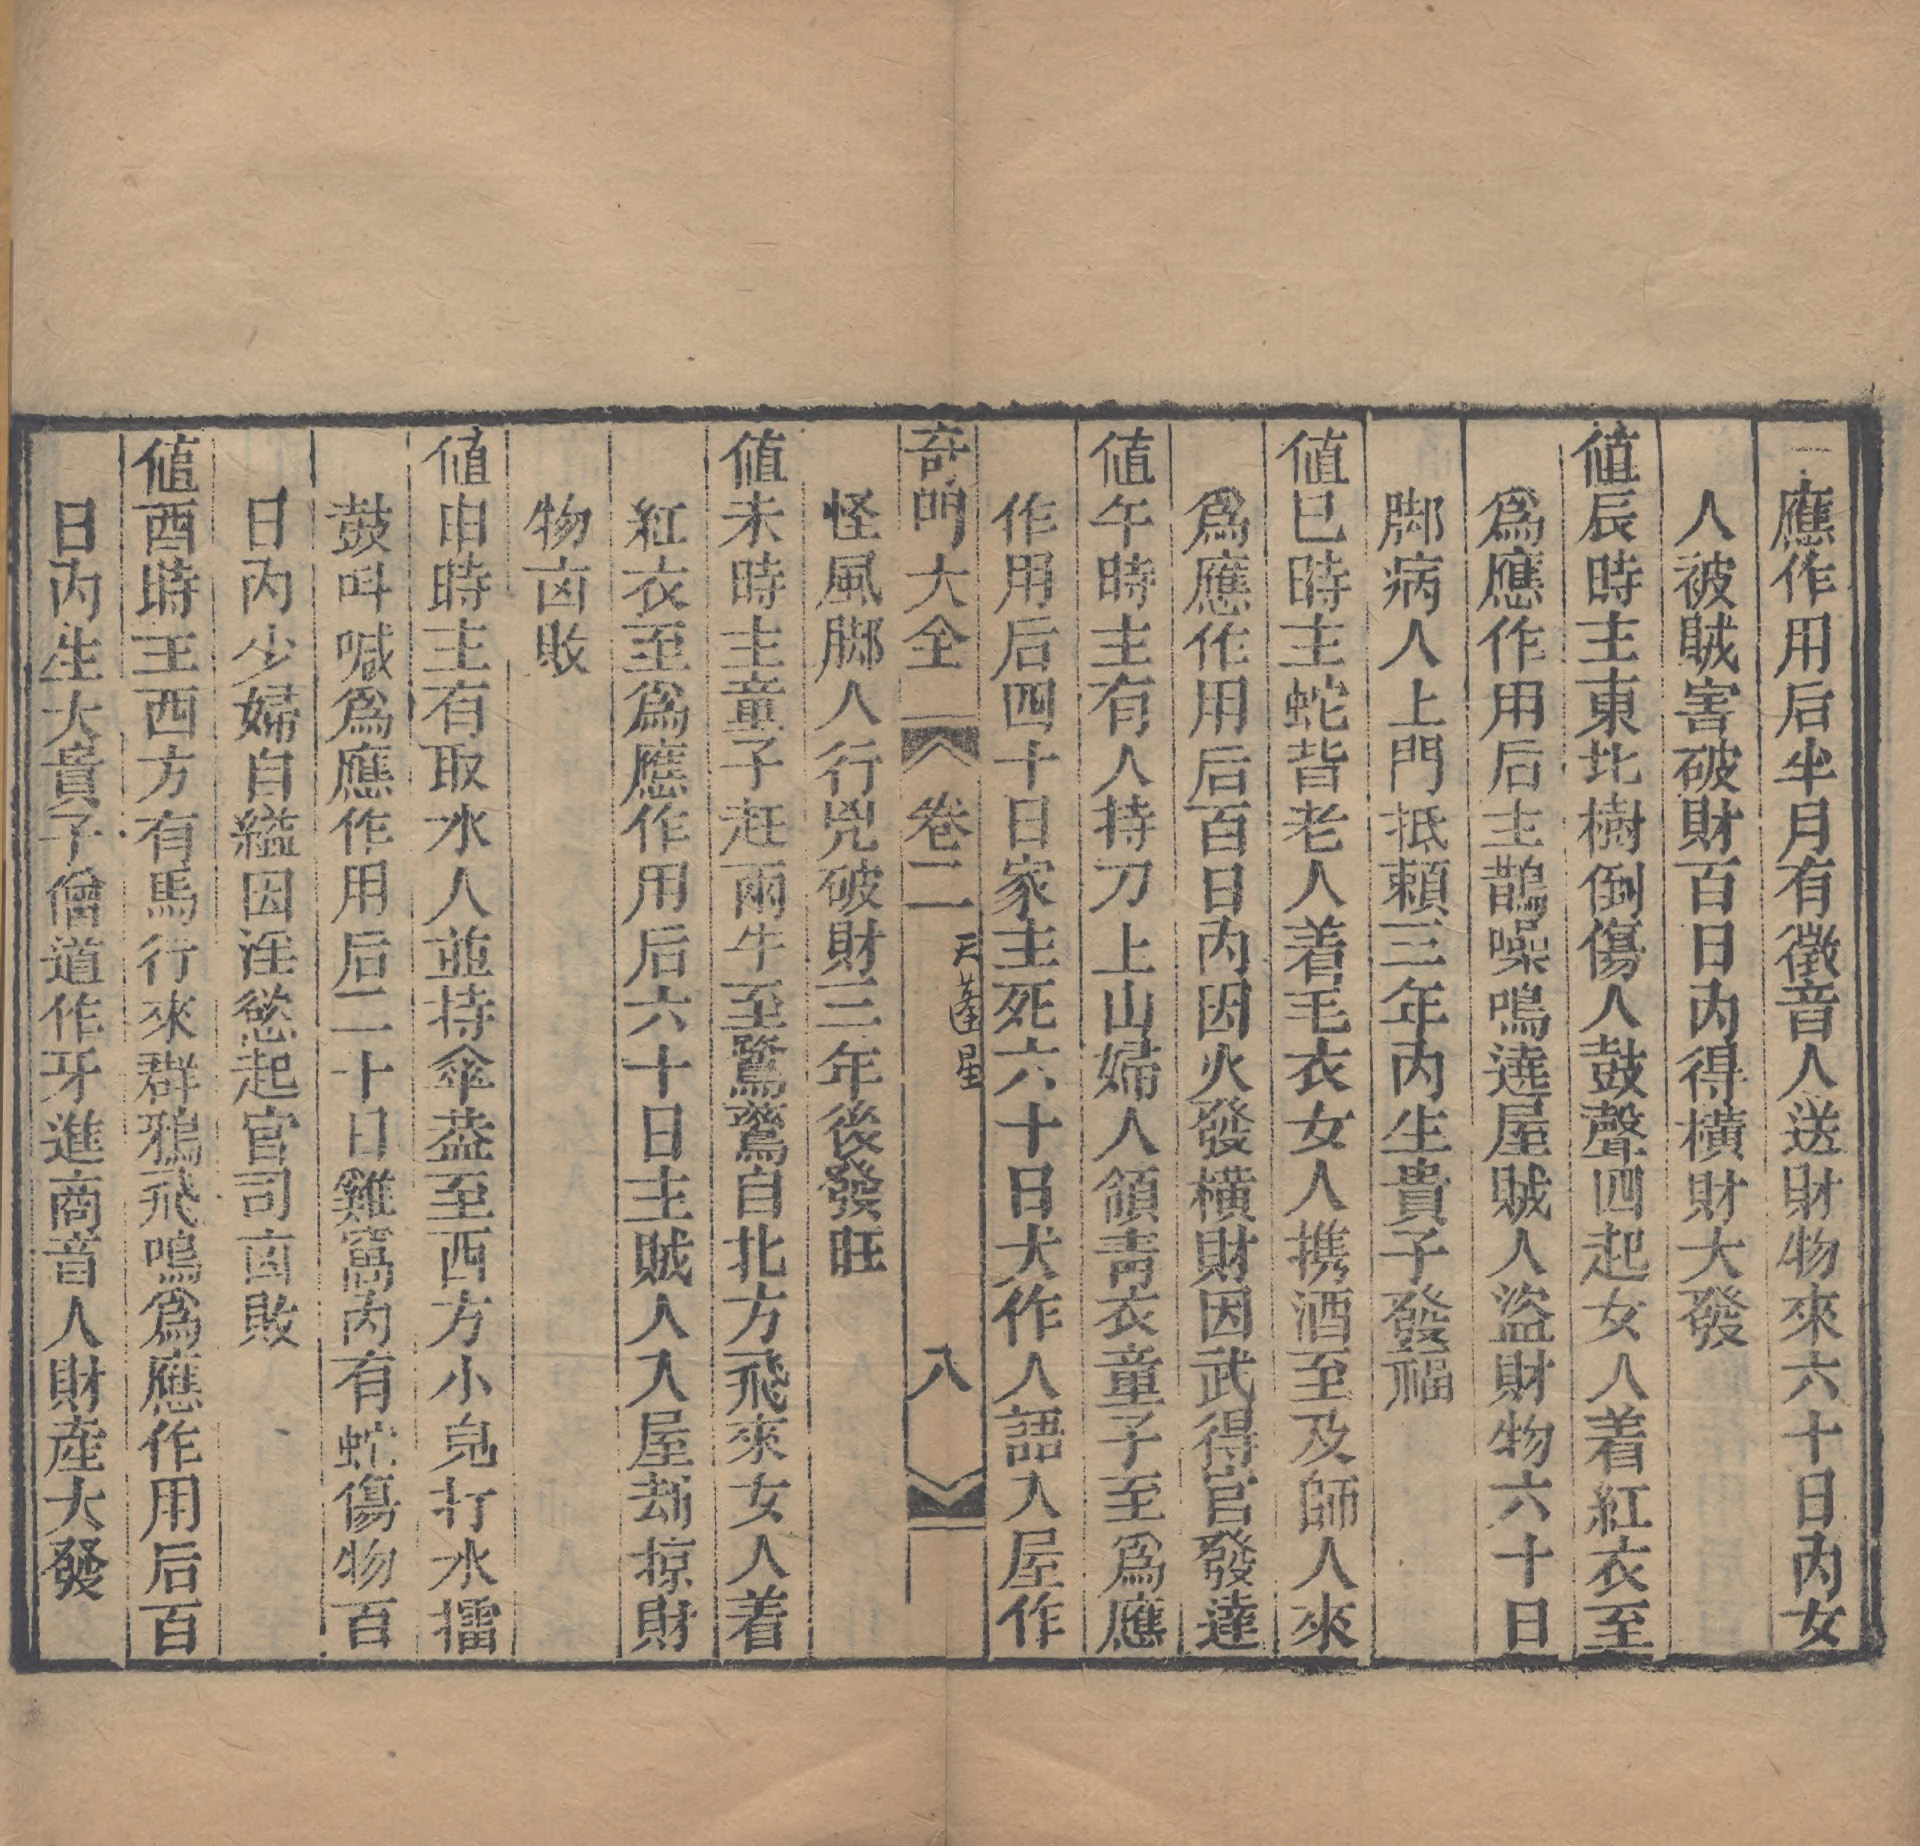 應作用后半月有徵音人送財物來六十日内女
人被賊害破財百日内得橫財大發
値辰時主東北樹倒傷人鼓聲四起女人着紅衣至
爲應作用后主鵲噪鳴遶屋賊人盜財物六十日
脚病人上門抵賴三年内生貴子發福
値巳時主蛇背老人着毛衣女人携酒至及師人來
爲應作用后百日内因火發橫財因武得官發達
値午時主有人持刀上山婦人領靑衣童子至爲應
作用后四十日家主死六十日犬作人語入屋作
奇門大全 卷二 天蓬星 八
怪風脚人行兇破財三年後發旺
値未時主童子赶兩牛至鷺鷥自北方飛來女人着
紅衣至爲應作用后六十日主賊人入屋刼掠財
物凶敗
値申時主有取水人並持傘葢至西方小兒打水擂
鼓叫喊爲應作用后二十日雞窩内有蛇傷物百
日内少婦自縊因淫慾起官司凶敗
値酉時主西方有馬行來群鴉飛鳴爲應作用后百
日内生大貴子僧道作牙進商音人財産大發